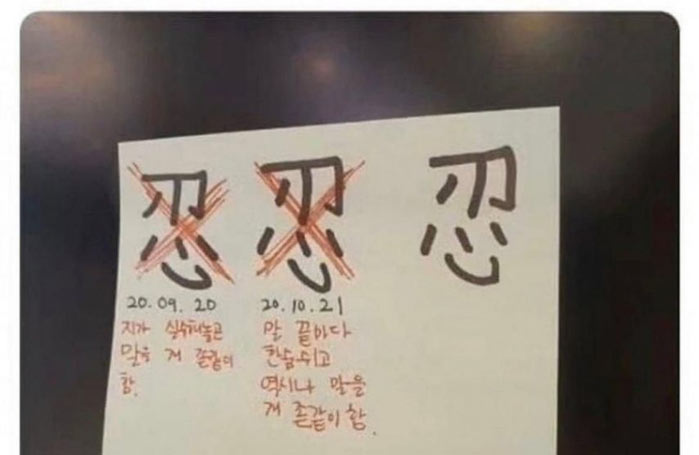 忍 忍 忍
20.09.20
지가 실수해놓고
말을 개 존같이
함.
20.10.21
말 끝마다
한숨쉬고
역시나 말을
개 존같이 함.